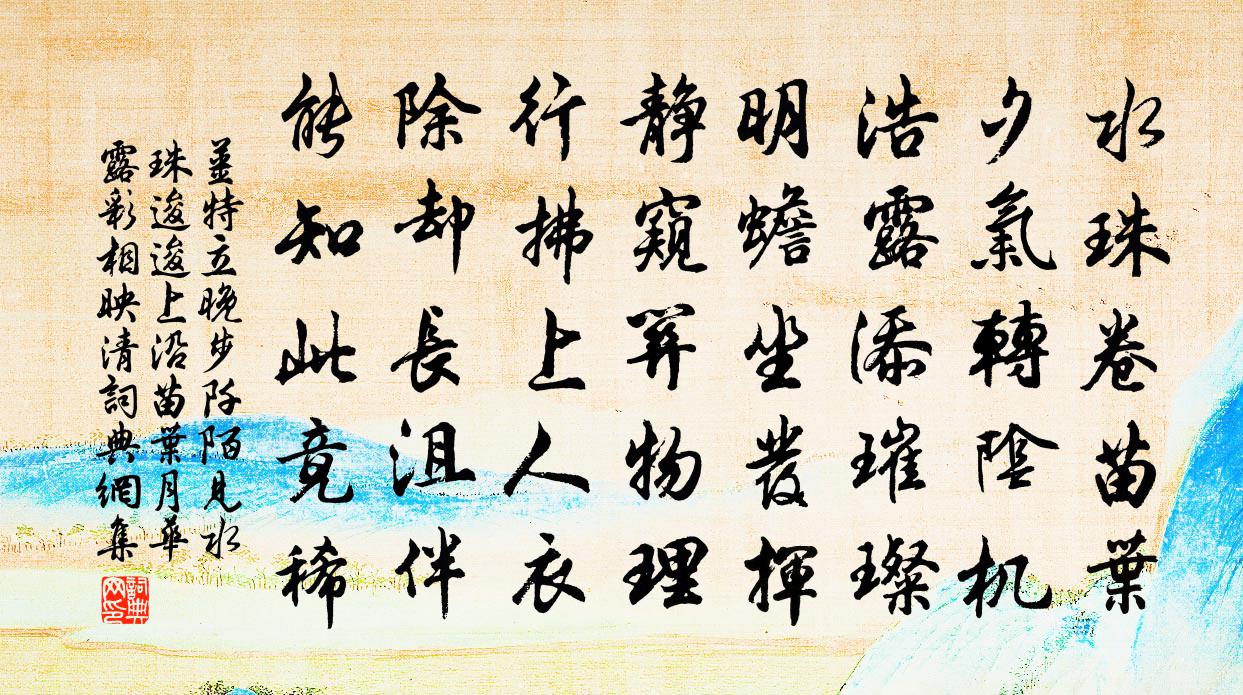 水珠卷苗葉
夕氣轉陰机
浩露添璀璨
明蟾坐發揮
静窺笄物理
行拂上人衣
除却長沮伴
能知此竟稀
薑特立晚步阡陌見水
珠逡逡上沿苗葉月華
露彩相映清詞典網集
詞典
网印